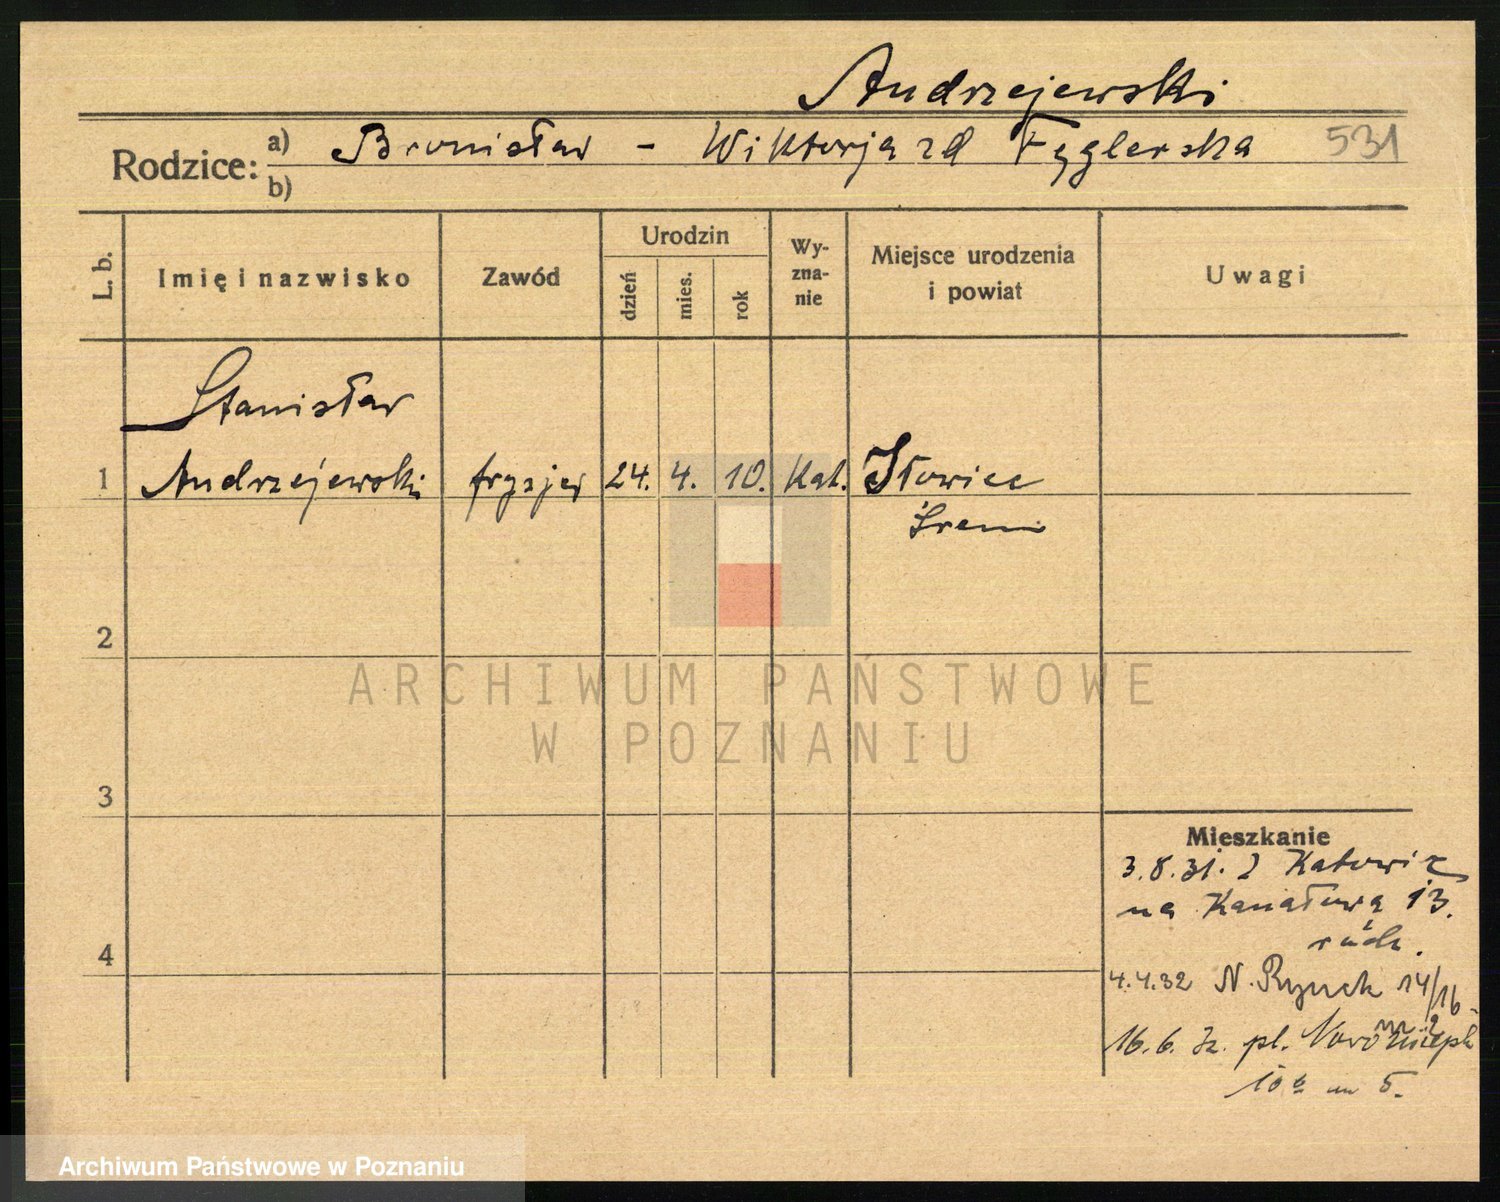 Andrzejewski
Rodzice: a) Bronisław - Wiktorja zd 531
b)
L. b. Imię i nazwisko Zawód Urodzin dzień mies. rok Wy-zna-nie Miejsce urodzenia i powiat Uwagi
Stanisław
1 Andrzejewski fryzjer 24. 4. 10. Kat. Iłowiec
Śrem
2
ARCHIWUM PAŃSTWOWE
W POZNANIU
3
Mieszkanie
3.8.31. z Katowic
na Kanałową 13.
4
4.4.32 N. Rynek 14/16
16.6. pl.
m 5.
Archiwum Państwowe w Poznaniu